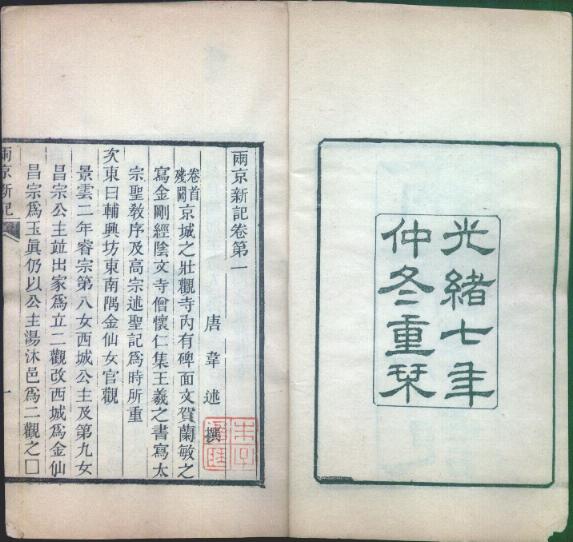 光緒七年
仲冬重栞
兩京新記卷第一
唐韋述撰
卷首殘闕京城之壯觀寺內有碑面文賀蘭敏之
寫金剛經陰文寺僧懷仁集王羲之書寫太
宗聖教序及高宗述聖記爲時所重
次東曰輔興坊東南隅金仙女官觀
景雲二年睿宗第八女西城公主及第九女
昌宗公主竝出家爲立二觀改西城爲金仙
昌宗爲玉眞仍以公主湯沐邑爲二觀之□
兩京新記
一